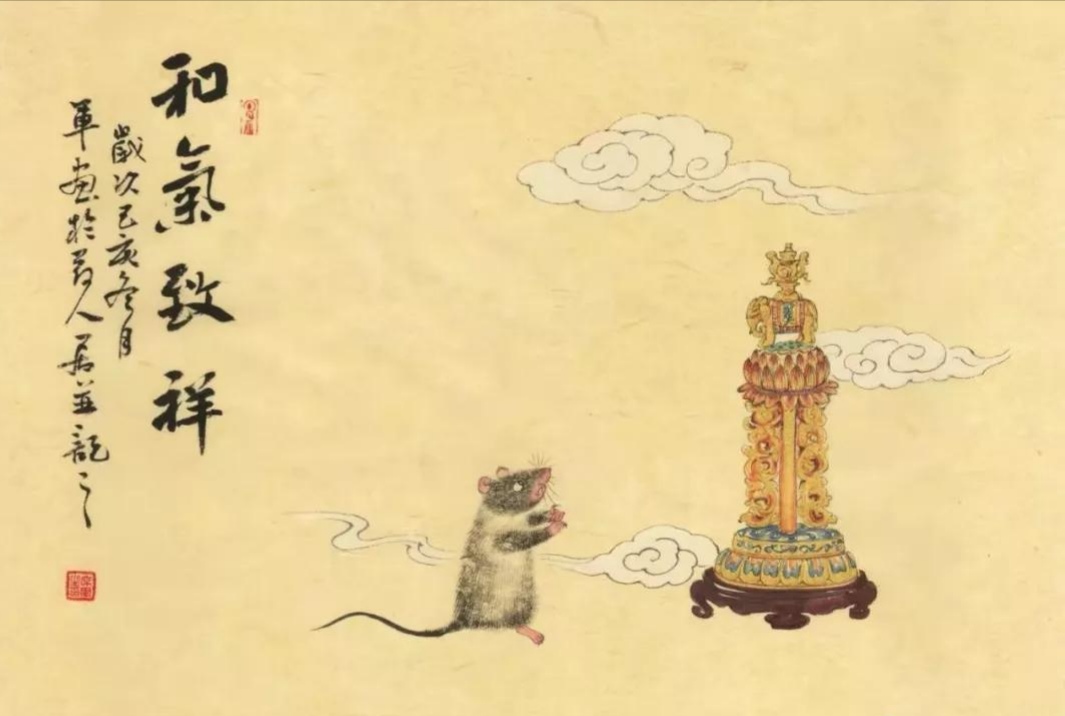 和氣致祥
歲次己亥冬月
軍畫於人居並記之